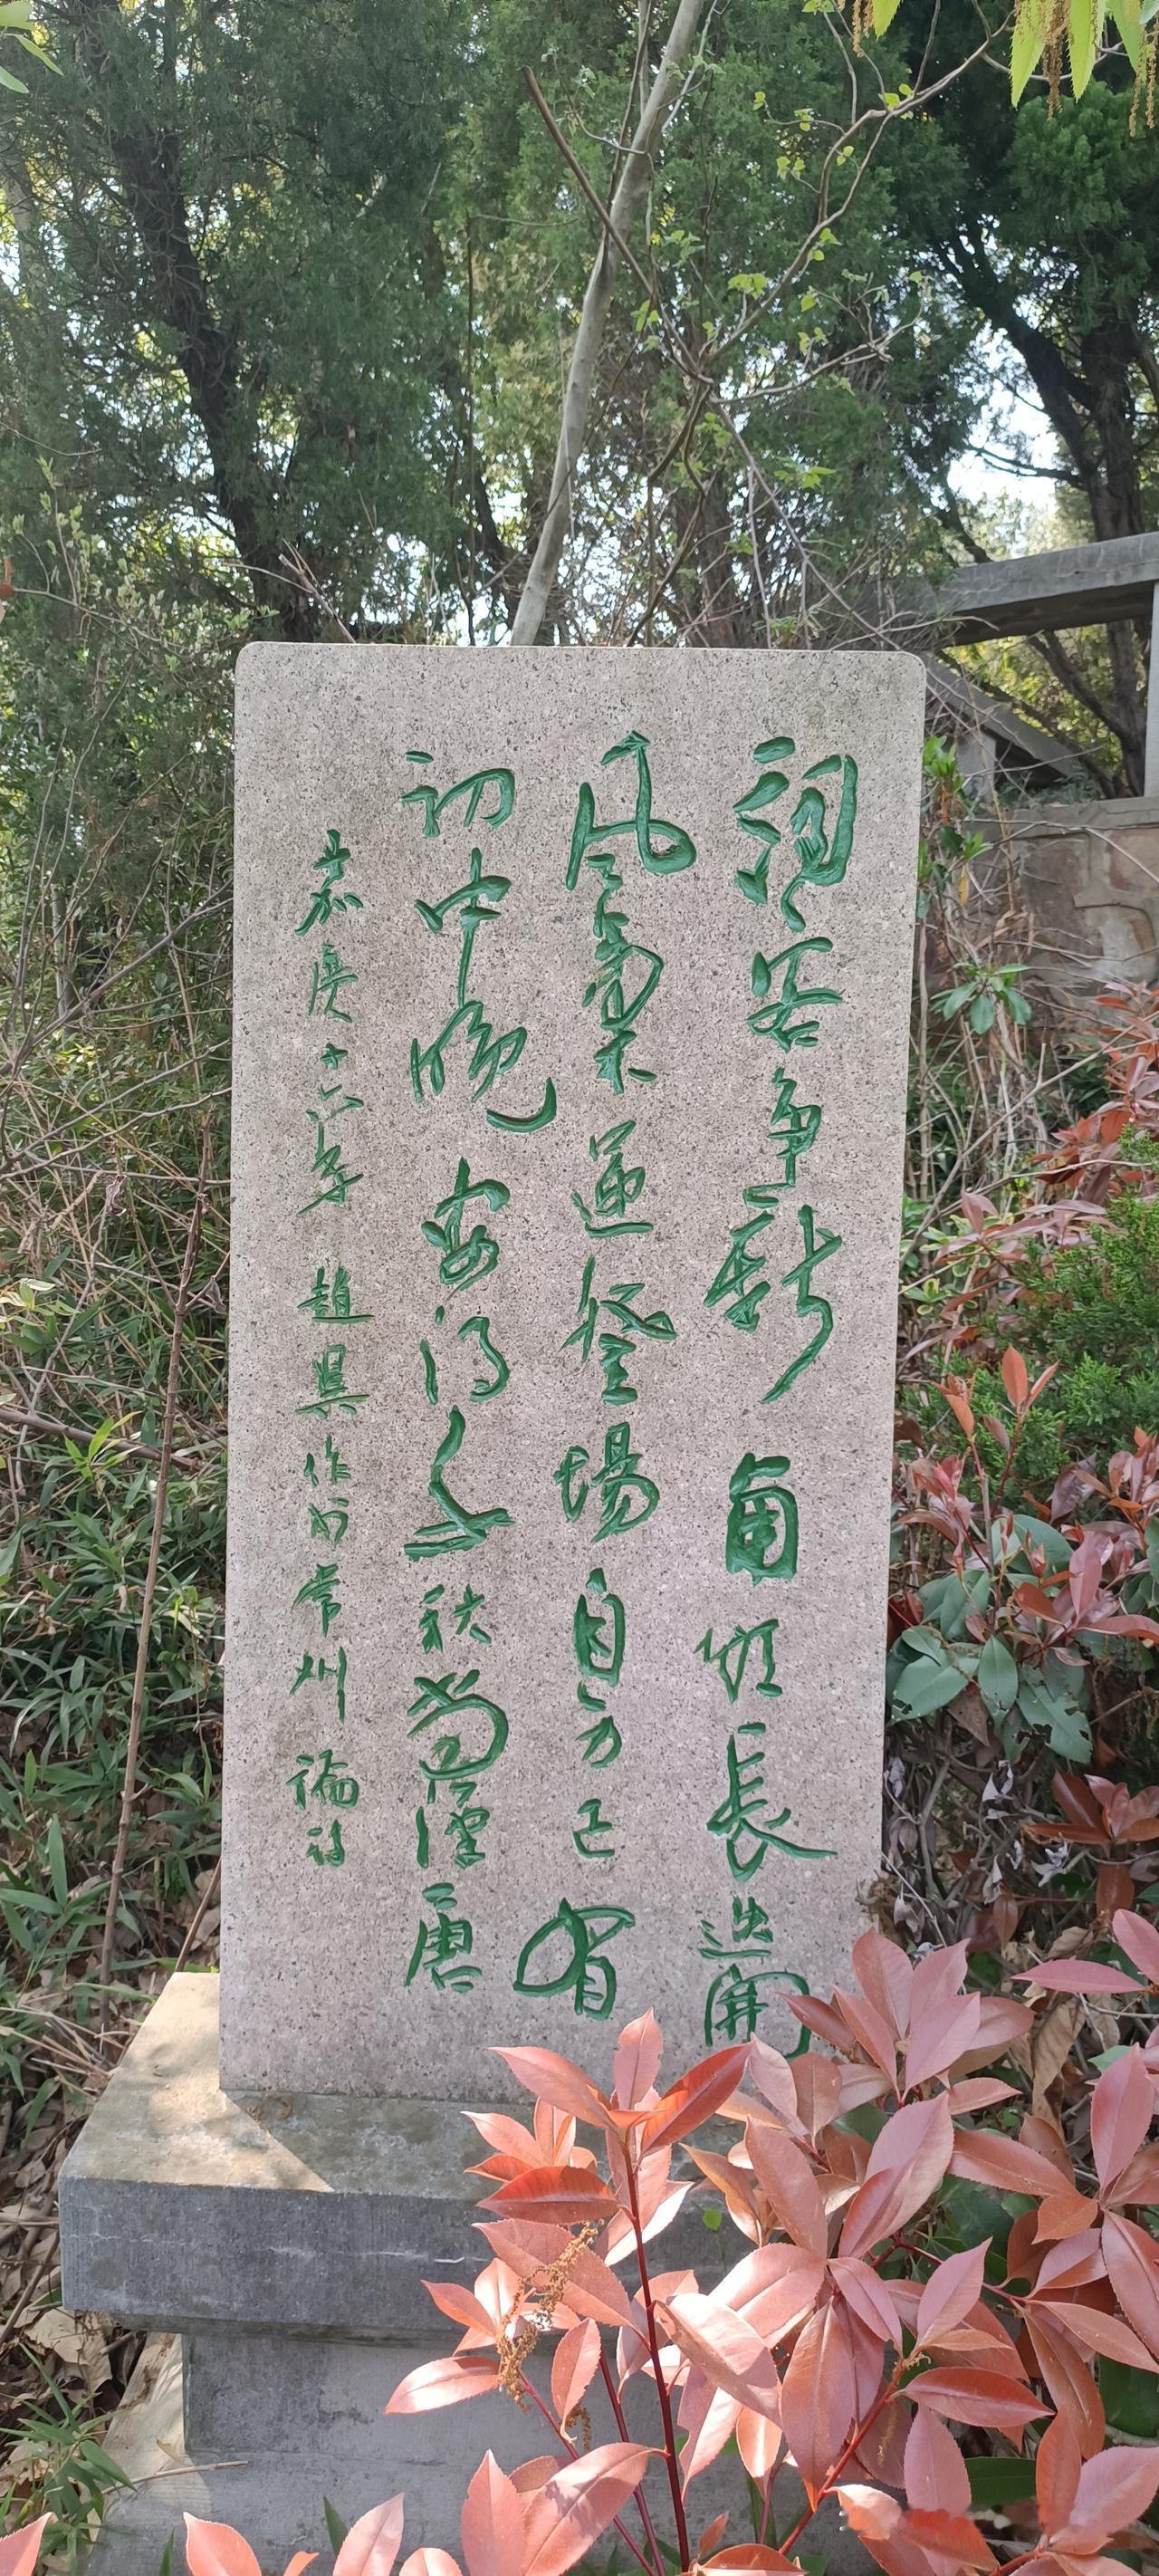 詞客争新角短長迭開
風氣逓登場自身已有
初中晚安得千秋尚漢唐
嘉慶十六年 趙翼作於常州 論詩